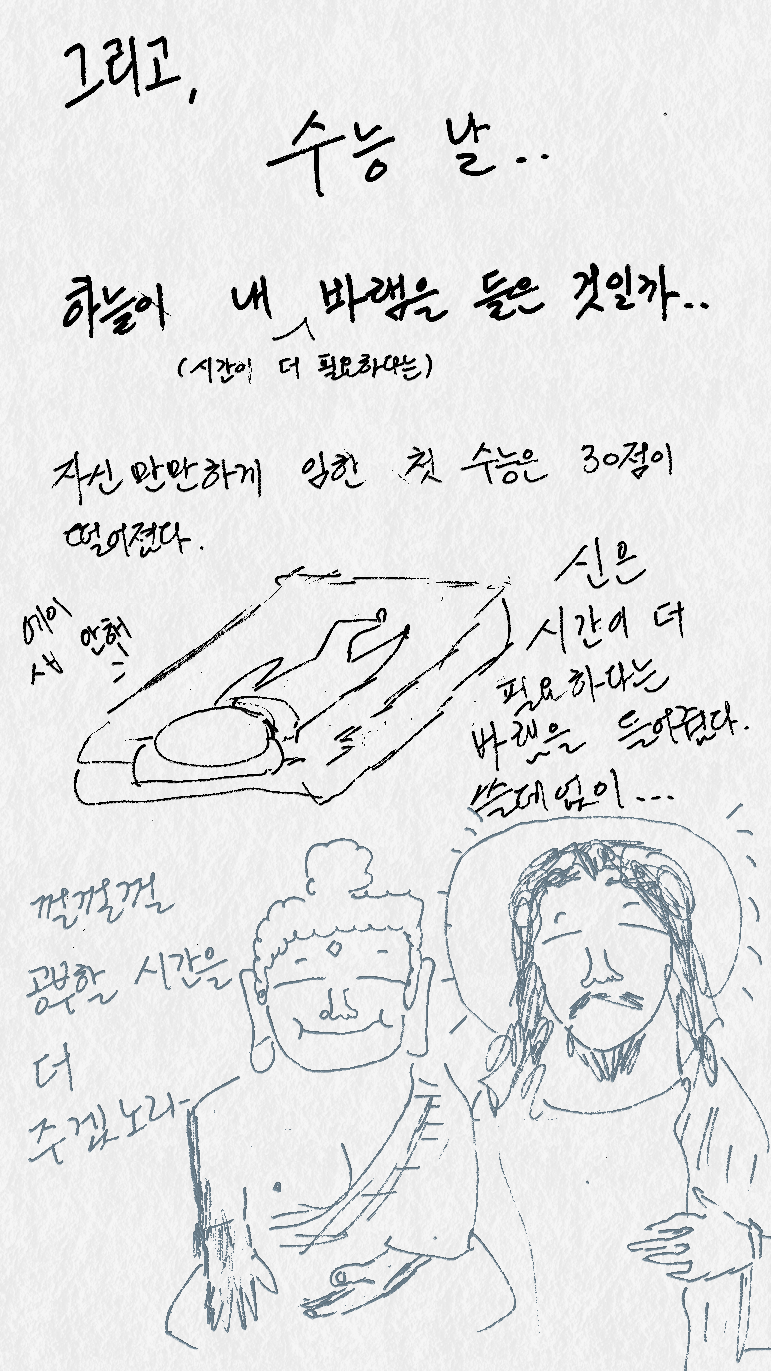 그리고,
수능 날..
하늘이 내 바램을 들은 것일까..
(시간이 더 필요하다는)
자신만만하게 임한 첫 수능은 30점이
떨어졌다.
에이
안해
신은
시간이 더
필요하다는
바램을 들어줬다.
쓸데없이...
껄껄껄
공부할 시간을
더
주겠노라-